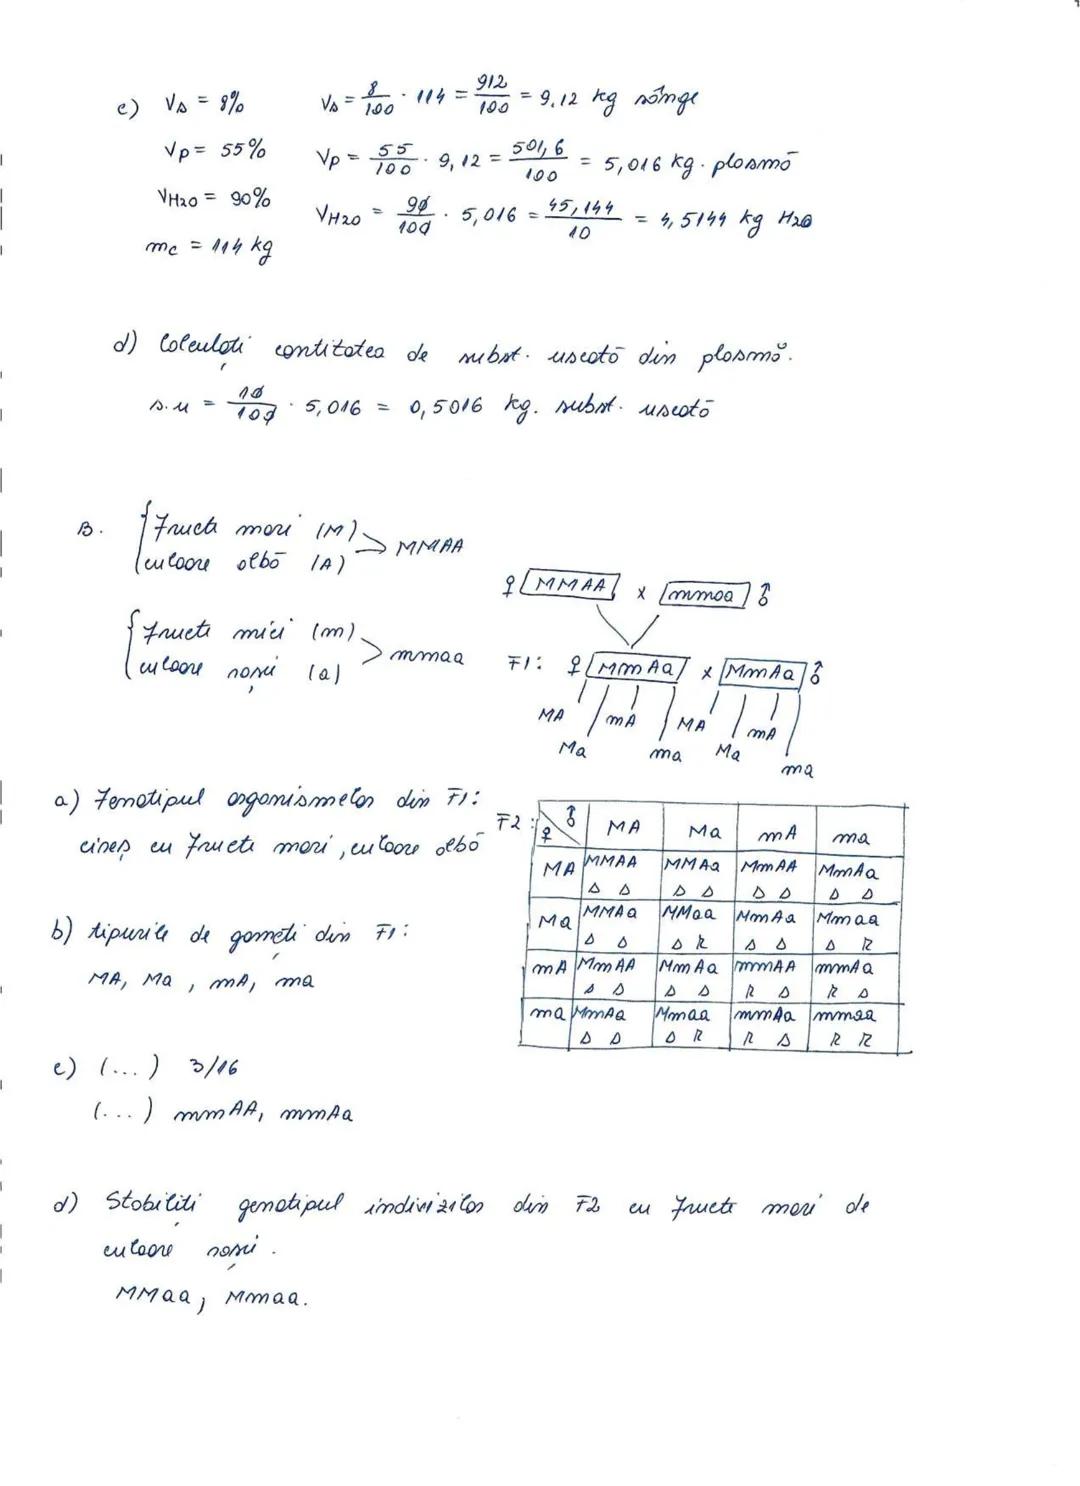 c) Vs = 8% Vs = 8/100 · 114 = 912/100 = 9,12 kg sânge
Vp = 55% Vp = 55/100 · 9,12 = 501,6/100 = 5,016 kg. plasmă
VH2O = 90% VH2O = 90/100 · 5,016 = 45,144/10 = 4,5144 kg H2O
mc = 114 kg
d) Calculați cantitatea de subst. uscată din plasmă.
s.u = 10/100 · 5,016 = 0,5016 kg. subst. uscată
B. { Fructe mari (M)
culoare albă (A) > MMAA
♀ MMAA x mmaa ♂
{ Fructe mici (m)
culoare roșii (a) > mmaa
F1: ♀ MmAa x MmAa ♂
MA Ma mA ma MA Ma mA ma
a) Fenotipul organismelor din F1:
cireș cu fructe mari, culoare albă
F2: ♀ ♂ MA Ma mA ma
MA MMAA MMAa MmAA MmAa
D D D D D D D D
Ma MMAa MMaa MmAa Mmaa
D D D R D D D R
mA MmAA MmAa mmAA mmAa
D D D D R D R D
ma MmAa Mmaa mmAa mmaa
D D D R R D R R
b) tipurile de gameți din F1:
MA, Ma, mA, ma
c) (...) 3/16
(...) mmAA, mmAa
d) Stabiliți genotipul indivizilor din F2 cu fructe mari de
culoare roșii.
MMaa, Mmaa.